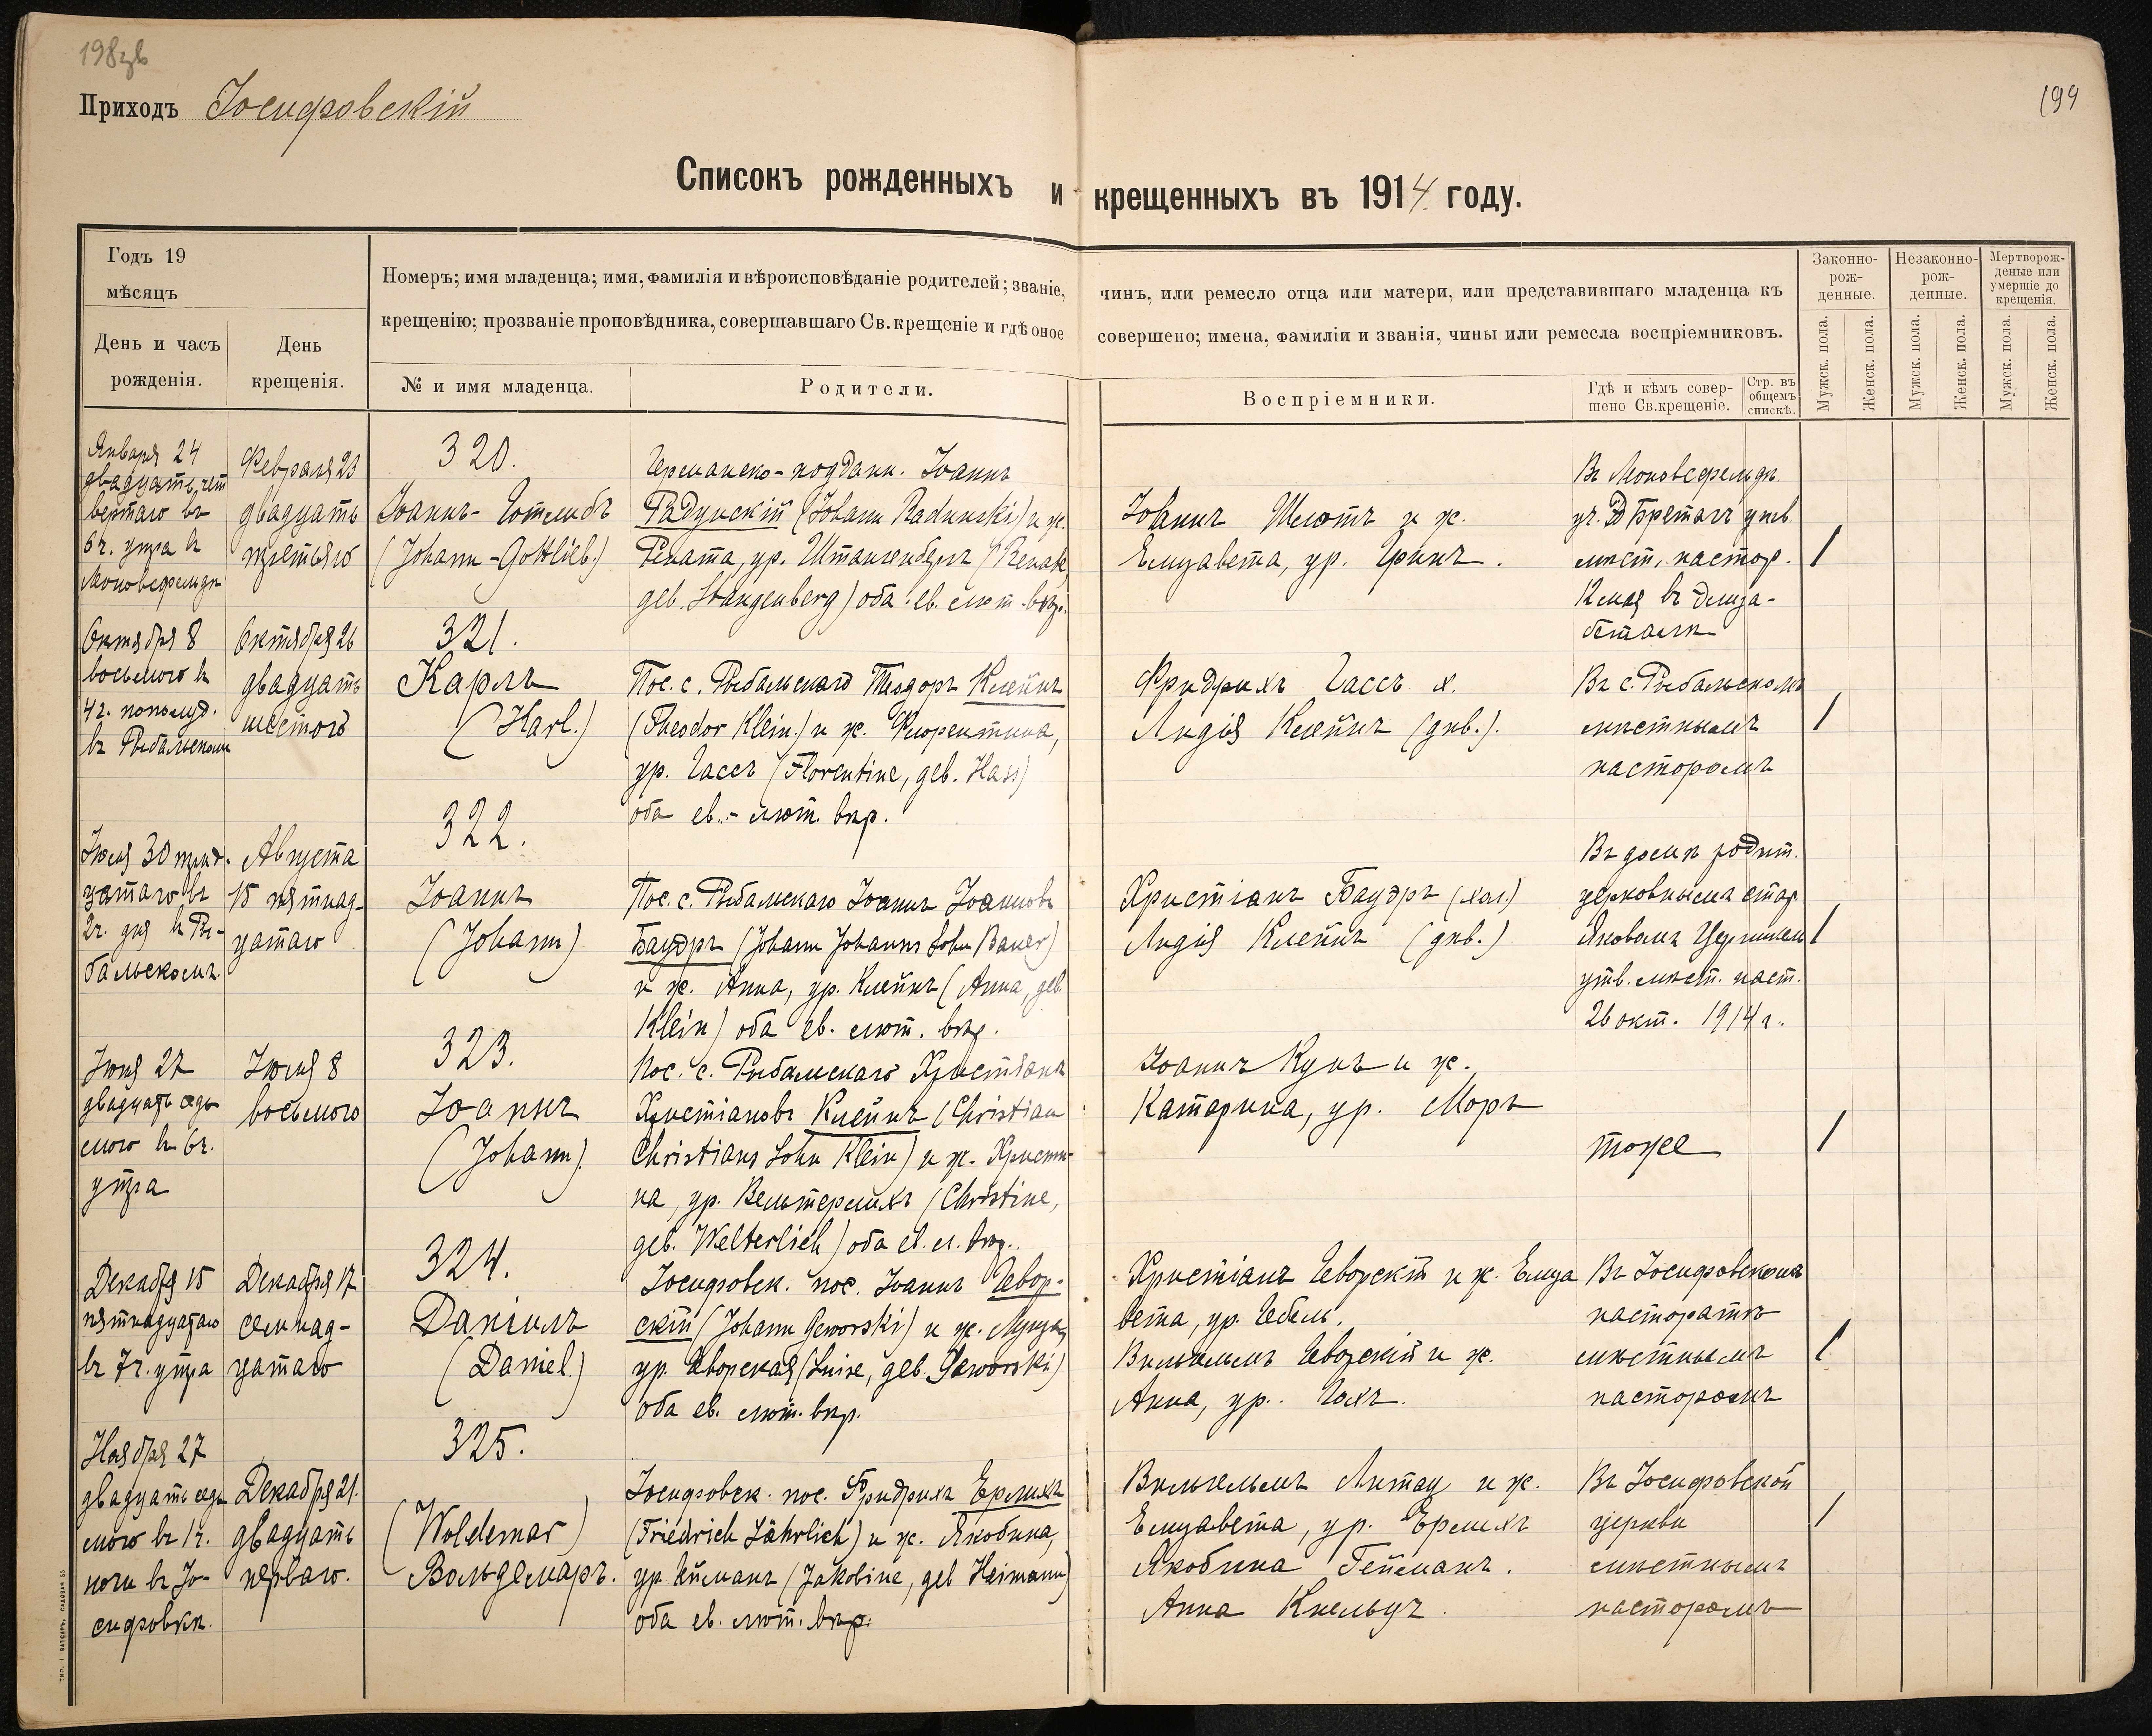 198
199
Приходъ Іосифовскій
Списокъ рожденныхъ и крещенныхъ въ 1914 году.
Годъ 19
мѣсяцъ
День и часъ
рожденія.
День
крещенія.
Номеръ; имя младенца; имя, фамилія и вѣроисповѣданіе родителей; званіе,
крещенію; прозваніе проповѣдника, совершавшаго Св. крещеніе и гдѣ оное
№ и имя младенца.
Родители.
чинъ, или ремесло отца или матери, или представившаго младенца къ
совершено; имена, фамиліи и званія, чины или ремесла воспріемниковъ.
Воспріемники.
Гдѣ и кѣмъ совер-
шено Св.крещеніе.
Стр. въ
общемъ
спискѣ.
Законно-
рож-
денные.
Незаконно-
рож-
денные.
Мертворож-
деные или
умершіе до
крещенія.
Мужск. пола.
Женск. пола.
Мужск. пола.
Женск. пола.
Мужск. пола.
Женск. пола.
Января 24
двадцать чет
вертаго въ
6ч. утра в
Февраля 23
двадцать
третьяго
320.
Іоаннъ-Готлибъ
(Johann-Gottlieb.)
Германско-поддан. Іоаннъ
Радунскій (Johann Radunski) и ж.
Рената, ур. Штангенбергъ (Renate,
geb. Stangenberg) оба ев. лют. вѣр.
Іоаннъ Шлотъ и ж.
Елизавета, ур. Функъ.
уч.
мѣст. пастор.
въ Елиза-
беталѣ
/
Октября 8
восьмого в
4ч. пополуд.
въ Рыбальском
Октября 26
двадцать
шестого
321.
Карлъ
(Karl.)
Пос. с. Рыбальскаго Теодоръ Клейнъ
(Theodor Klein.) и ж. Флорентина,
ур. Гассъ (Florentine, geb. Hass)
оба ев.-лют. вѣр.
Фридрихъ Гассъ х.
Лидія Клейнъ (дѣв.).
Въ с. Рыбальскомъ
мѣстнымъ
пасторомъ
/
Іюля 30 трид-
цатаго въ
2ч. дня в Ры-
бальскомъ
Августа
15 пятнад-
цатаго
322.
Іоаннъ
(Johann)
Пос. с. Рыбальскаго Іоаннъ Іоанновъ
Бауэръ (Johann Johanns Sohn Bauer)
и ж. Анна, ур. Клейнъ (Anna, geb.
Klein) оба ев. лют. вѣр.
Христіанъ Бауэръ (хол.)
Лидія Клейнъ (дѣв.)
Въ домѣ родит.
церковнымъ стар
Яковомъ
утв. мѣст. паст.
26 окт. 1914 г.
/
Іюня 27
двадцать седь
мого в 6ч.
утра
Іюля 8
восьмого
323.
Іоаннъ
(Johann).
Пос. с. Рыбальскаго Христіанъ
Христіановъ Клейнъ (Christian
Christians Sohn Klein) и ж. Христи-
на, ур. Вельтерлихъ (Christine,
geb. Welterlich) оба ев. л. вѣр.
Іоаннъ Кунъ и ж.
Катарина, ур. Моръ
тоже
/
Декабря 15
пятнадцатаго
въ 7ч. утра
Декабря 17
семнад-
цатаго
324.
Даніилъ
(Daniel.)
Іосифовск. пос. Іоаннъ Гевор-
скій (Johann Geworski) и ж. Луиза,
ур. Геворская (Luise, geb. Geworski)
оба ев. лют. вѣр.
Христіанъ Геворскій и ж. Елиза
вета, ур. Гебель.
Вильгельмъ Геворскій и ж.
Анна, ур. Гохъ.
Въ Іосифовскомъ
пасторатѣ
мѣстнымъ
пасторомъ
/
Ноября 27
двадцать седь
мого въ 1ч.
ночи въ Іо-
сифовкѣ.
Декабря 21.
двадцать
перваго.
325.
(Woldemar)
Вольдемаръ.
Іосифовск. пос. Фридрихъ Ерлихъ
(Friedrich Jährlich) и ж. Якобина,
ур. Гейманъ (Jakobine, geb Heimann)
оба ев. лют. вѣр.
Вильгельмъ Литау и ж.
Елизавета, ур. Ерлихъ
Якобина Гейманъ.
Анна Кнельцъ.
Въ Іосифовской
церкви
мѣстнымъ
пасторомъ
/